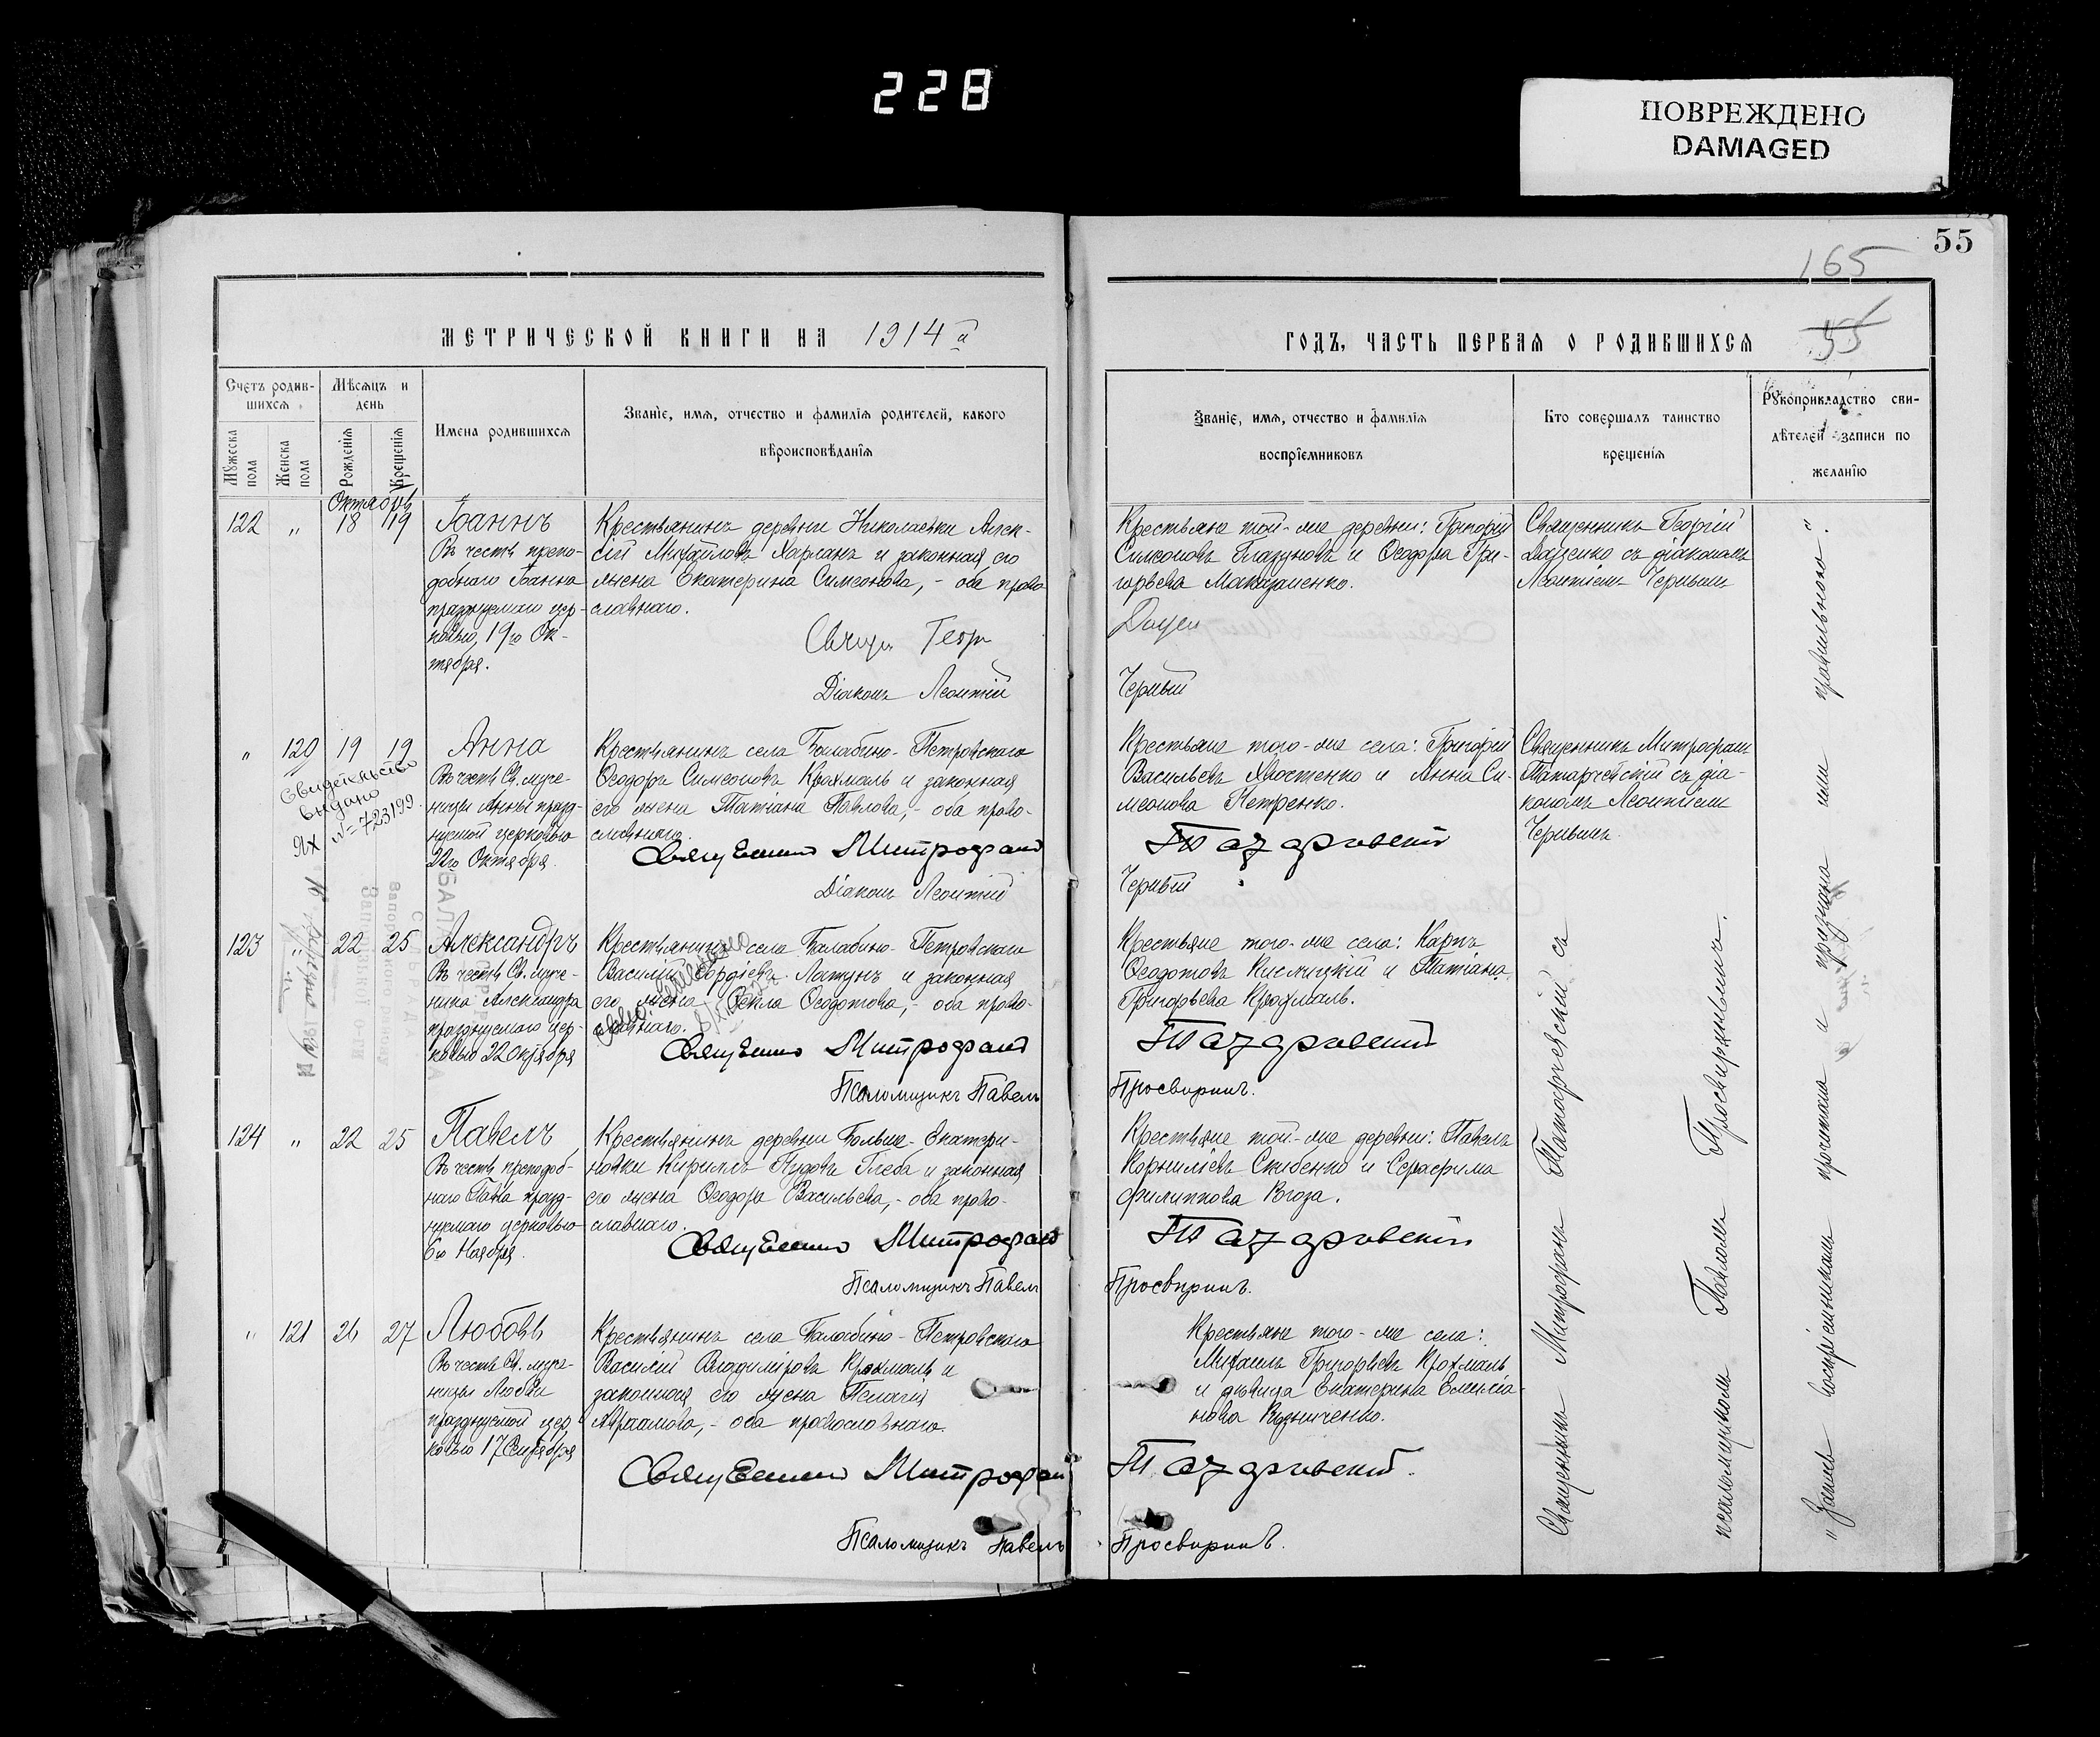 228
ПОВРЕЖДЕНО
DAMAGED
55
165
55
МЕТРИЧЕСКОЙ КНИГИ НА 1914й
ГОДЪ, ЧАСТЬ ПЕРВАЯ О РОДИВШИХСЯ
Счетъ родив-
шихся
Мѣсяцъ и
день
Мужеска пола
Женска пола
Рожденія
Крещенія
Имена родившихся
Званіе, имя, отчество и фамилія родителей, какого
вѣроисповѣданія
Званіе, имя, отчество и фамилія
воспріемниковъ
Кто совершалъ таинство
крещенія
Рукоприкладство сви-
дѣтелей записи по
желанію
Октябрь
122 " 18 19
Іоаннъ
Въ честь препо-
добнаго Іоанна
празднуемаго цер-
ковью, 19го Ок-
тября.
Крестьянинъ деревни Николаевки Алек-
сій Михайловъ Харланъ и законная его
жена Екатерина Симеонова, - оба право-
славнаго.
Священ Геор
Діаконъ Леонтій
Крестьяне той-же деревни: Григорій
Симеоновъ Глазуновъ и Ѳеодора Гри-
горьева
Доцен
Черный
Священникъ Георгій
Доценко съ діакономъ
Леонтіемъ Чернымъ
" 120 19 19
Анна
Въ честь Св. муче-
ницы Анны празд-
нуемой церковью
22го Октября.
Свидетельство
выдано
ЯХ №=723199
Крестьянинъ села Балабино-Петровскаго
Ѳеодоръ Симеоновъ Крохмаль и законная
его жена Татіана Павлова, - оба право-
славнаго.
Священникъ Митрофанъ
Діаконъ Леонтій
Крестьяне того-же села: Григорій
Васильевъ Хвостенко и Анна Си-
меонова Петренко.
Татаревскій
Черный
Священникъ Митрофанъ
Татаревскій съ діа-
кономъ Леонтіемъ
Чернымъ.
123 " 22 25
Александръ
Въ честь Св. муче-
ника Александра
празднуемаго цер-
ковью 22 Октября
Крестьянинъ села Балабино-Петровскаго
Василій Гордіевъ Лотунъ и законная
его жена Ѳекла Ѳеодотова, - оба право-
славнаго.
Священникъ Митрофанъ
Псаломщикъ Павелъ
Крестьяне того-же села: Карпъ
Ѳеодотовъ Кислицкій и Татіана
Григорьева Крохмаль.
Татаревскій
Просвиринъ.
124 " 22 25
Павелъ
Въ честь преподоб-
наго Павла празд-
нуемаго церковью
6го Ноября.
Крестьянинъ деревни Больше-Екатери-
новки Кириллъ Пудовъ Глеба и законная
его жена Ѳеодора Васильева, - оба право-
славнаго.
Священникъ Митрофанъ
Псаломщикъ Павелъ
Крестьяне той-же деревни: Павелъ
Корниліевъ Скибенко и Серафима
Филиппова Когоза.
Татаревскій
Просвиринъ.
" 121 26 27
Любовь
Въ честь Св. муче-
ницы Любви
празднуемой цер-
ковью 17 Сентября
Крестьянинъ села Балабино-Петровскаго
Василій Владиміровъ Крохмаль и
законная его жена Пелагія
Авраамова, - оба православнаго.
Священникъ Митрофан
Псаломщикъ Павелъ
Крестьяне того-же села:
Михаилъ Григорьевъ Крохмаль
и дѣвица Екатерина Емиліа-
нова Кузниченко.
Татаревскій.
Просвиринъ.
Священникъ Митрофанъ Татаревскій съ
псаломщикомъ Павломъ Просвиринымъ.
" Запись воспріемниками прочитана и признана ими правильною".